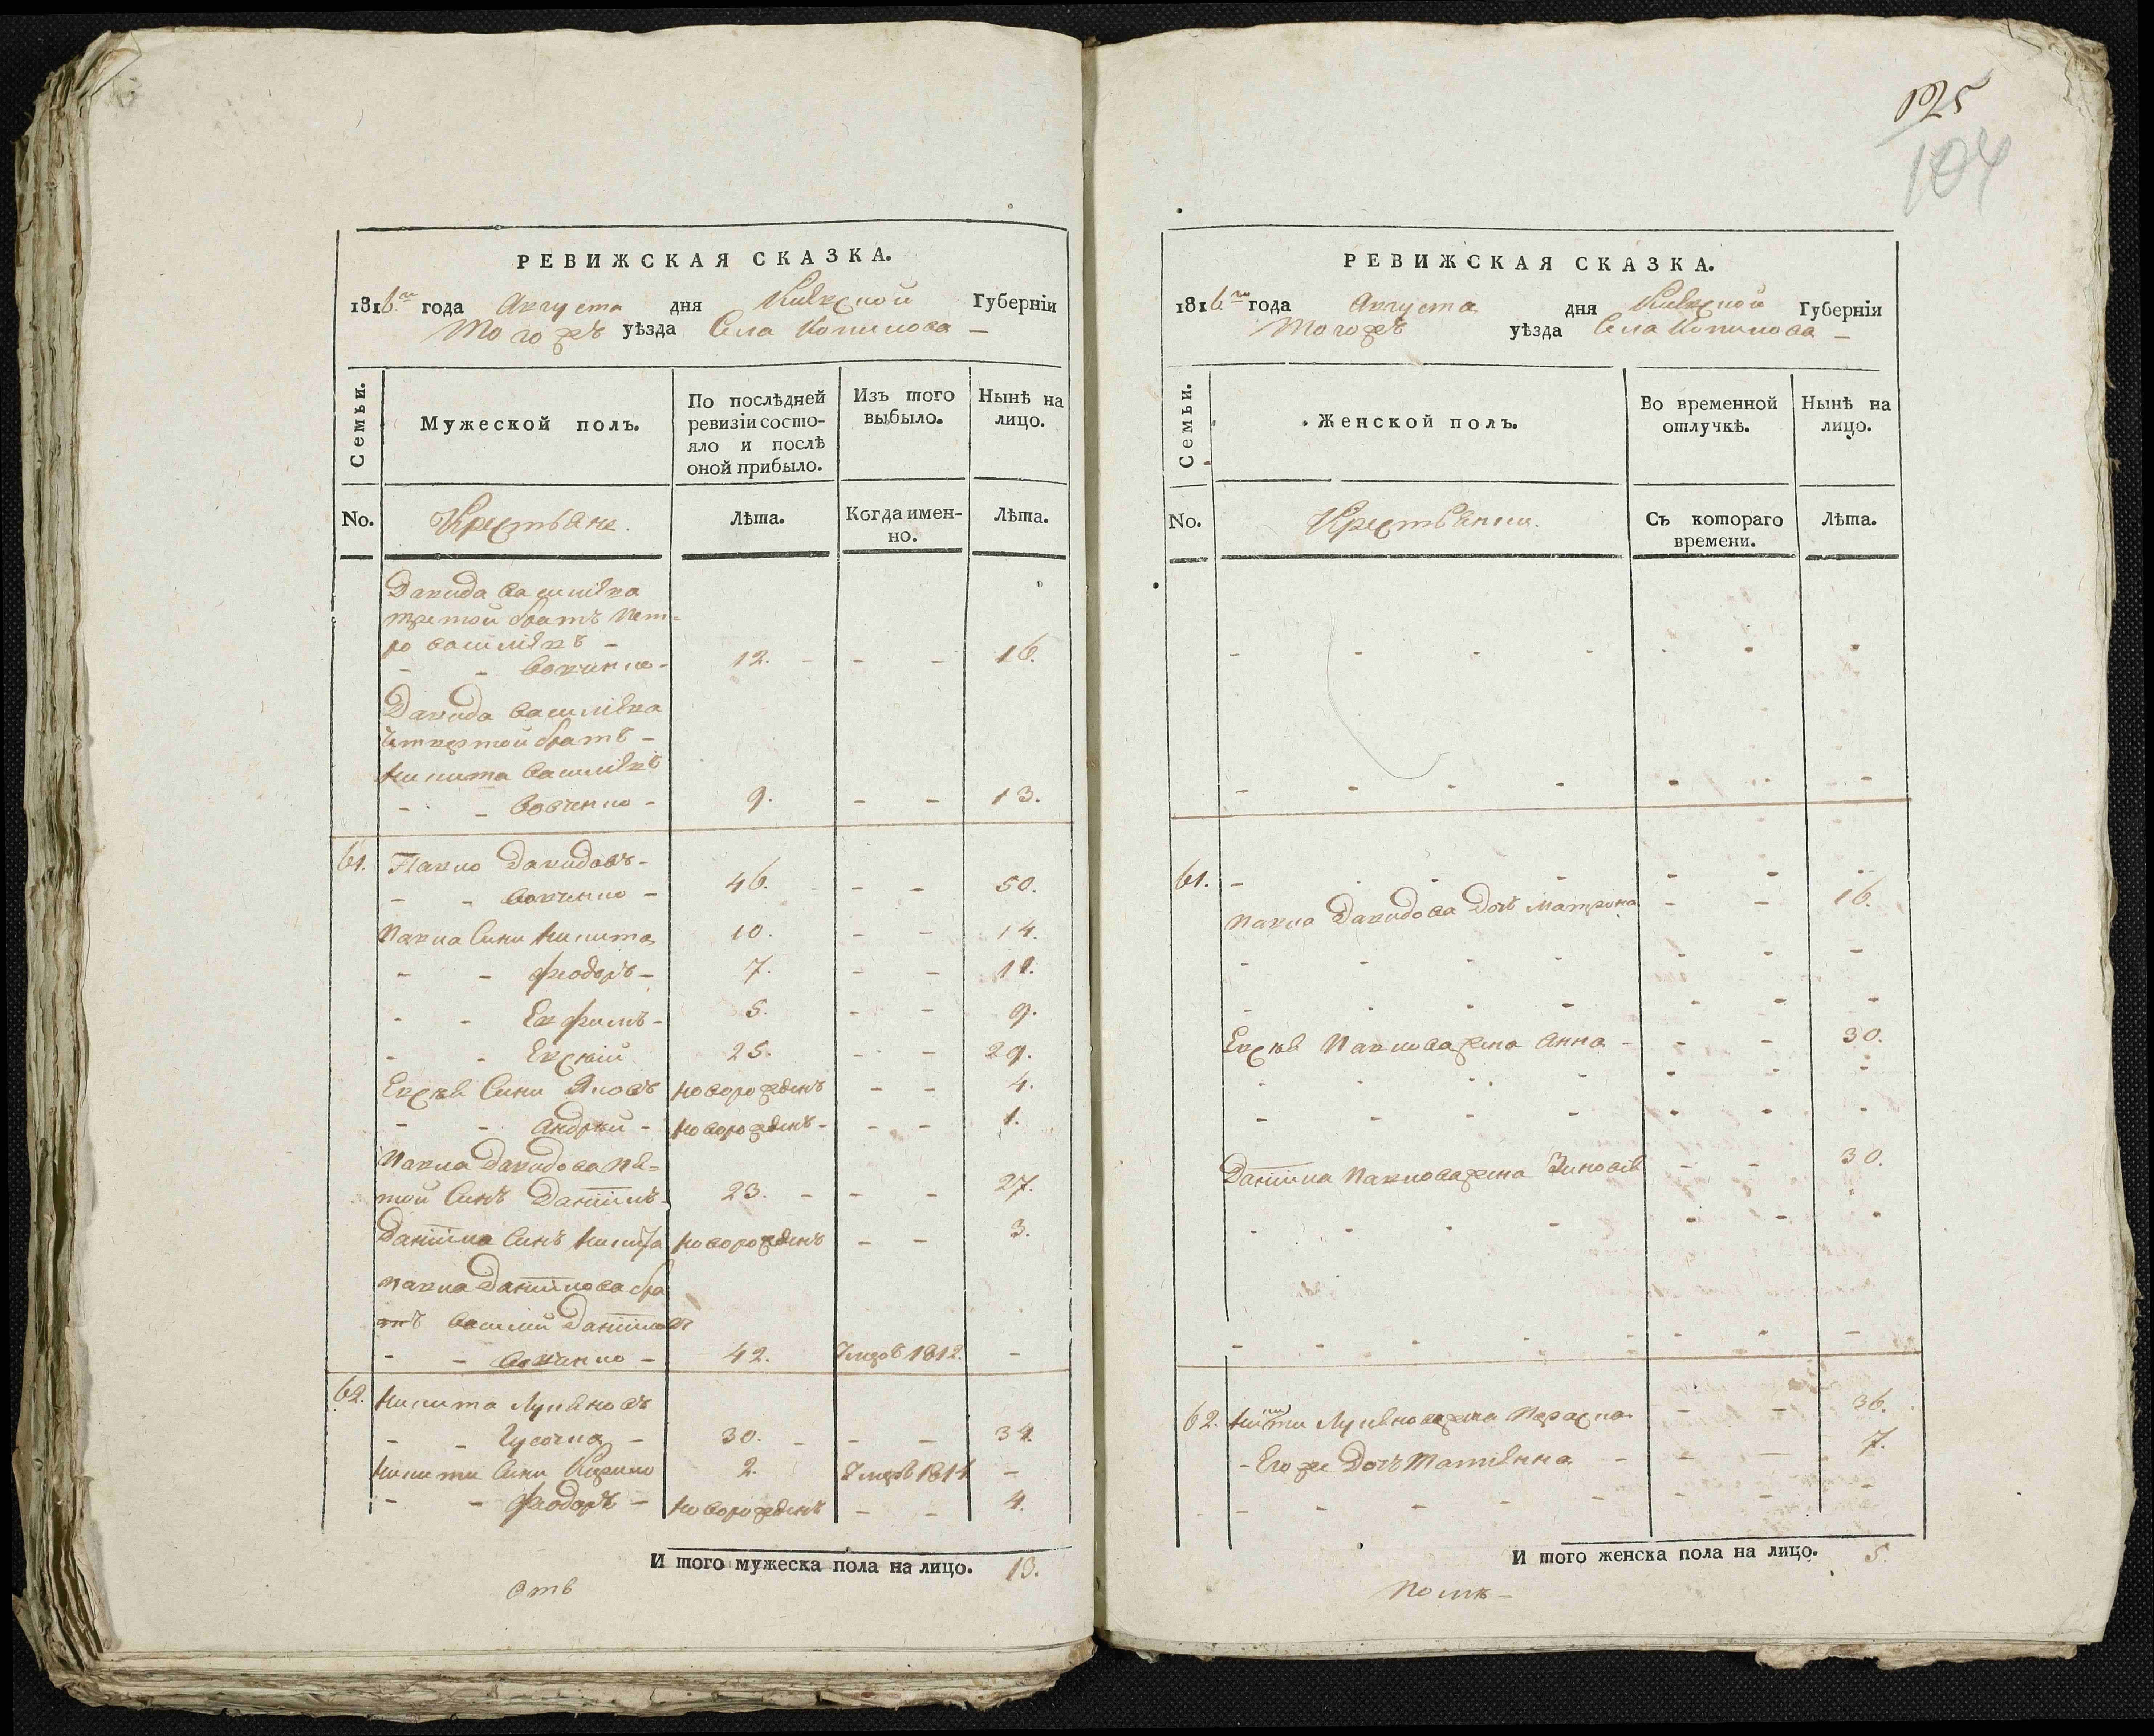 125
104
РЕВИЖСКАЯ СКАЗКА.
1816го года Августа дня Киевской Губерніи
Тогожъ уѣзда Села Копилова
Семьи.
Мужеской полъ.
По послѣдней ревизіи состо-
яло и послѣ
оной прибыло.
Изъ того
выбыло.
Нынѣ на
лицо.
No.
Крестьяне.
Лѣта.
Когда имен-
но.
Лѣта.
Давида Василіева
третой братъ Пет-
ро Василіевъ
Вовченко 12. 16.
Давида Василіева
четвертой братъ
Никита Василіевъ
Вовченко 9. 13.
61. Павло Давидовъ
Вовченко 46. 50.
Павла Сини Никита 10. 14.
Феодоръ 7. 11.
Евфимъ 5. 9.
Евсѣй 25. 29.
Евсѣя Сини Яковъ новорожденъ 4.
Андрей новорожденъ 1.
Павла Давидова пя-
той Синъ Даніилъ 23. 27.
Даніила Синъ Никита новорожденъ 3.
Павла Даніилова бра
тъ Василій Даніиловъ
Вовченко 42. Умеръ 1812.
62. Никита Лукяновъ
30. 34.
Никити Сини Кирило 2. Умеръ 1814
Феодоръ новорожденъ 4.
И того мужеска пола на лицо. 13.
Отв
РЕВИЖСКАЯ СКАЗКА.
1816го года Августа дня Киевской Губерніи
Тогожъ уѣзда Села Копилова
Семьи.
Женской полъ.
Во временной
отлучкѣ.
Нынѣ на
лицо.
No.
Крестьянки.
Съ котораго
времени.
Лѣта.
61.
Павла Давидова Дочь Матрона 16.
Евсѣя Павлова жена Анна 30.
Даніила Павлова жена Зиновія 30.
62. Никити Лукянова жена Параска 36.
Его же Дочь Татіянна 7.
И того женска пола на лицо. 5.